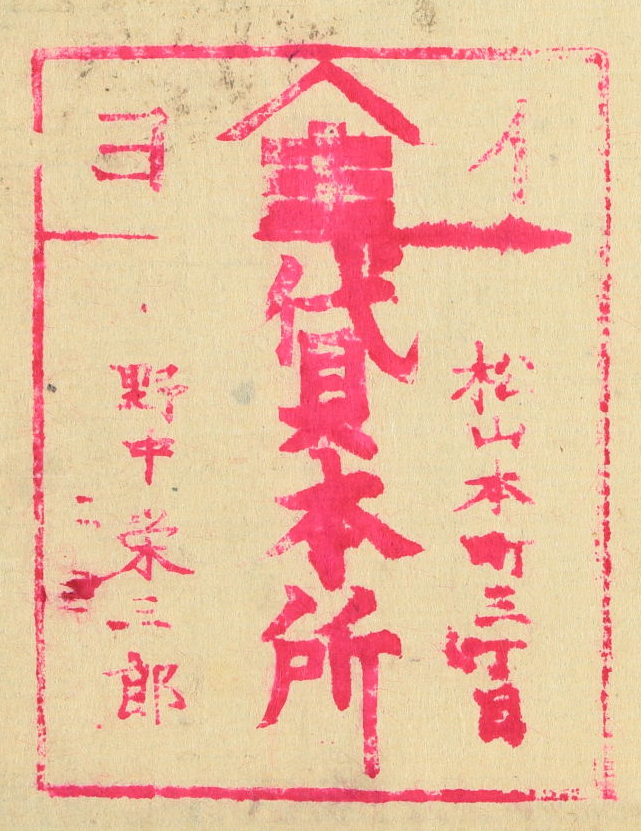 イヨ
松山本町三丁目
貸本所
野中栄三郎